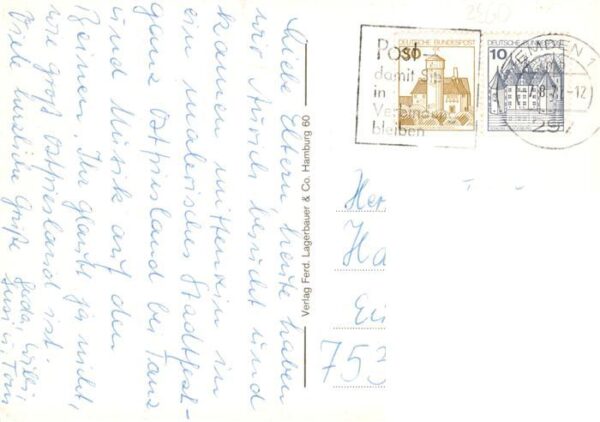 Liebe Eltern, heute haben
wir Aurich besucht und
kamen mittenrein in
ein malerisches Stadtfest –
ganz Ostfriesland bei Tanz
und Musik auf den
Beinen. Ihr glaubt ja nicht,
wie groß Ostfriesland ist.
Viele herzliche Grüße
Verlag Ferd. Lagerbauer & Co. Hamburg 60
Post –
damit Sie
in
Verbindung
bleiben
DEUTSCHE BUNDESPOST
50
DEUTSCHE BUNDESPOST
10
EMDEN 1
-12
297
Her
Ha
Ei
753